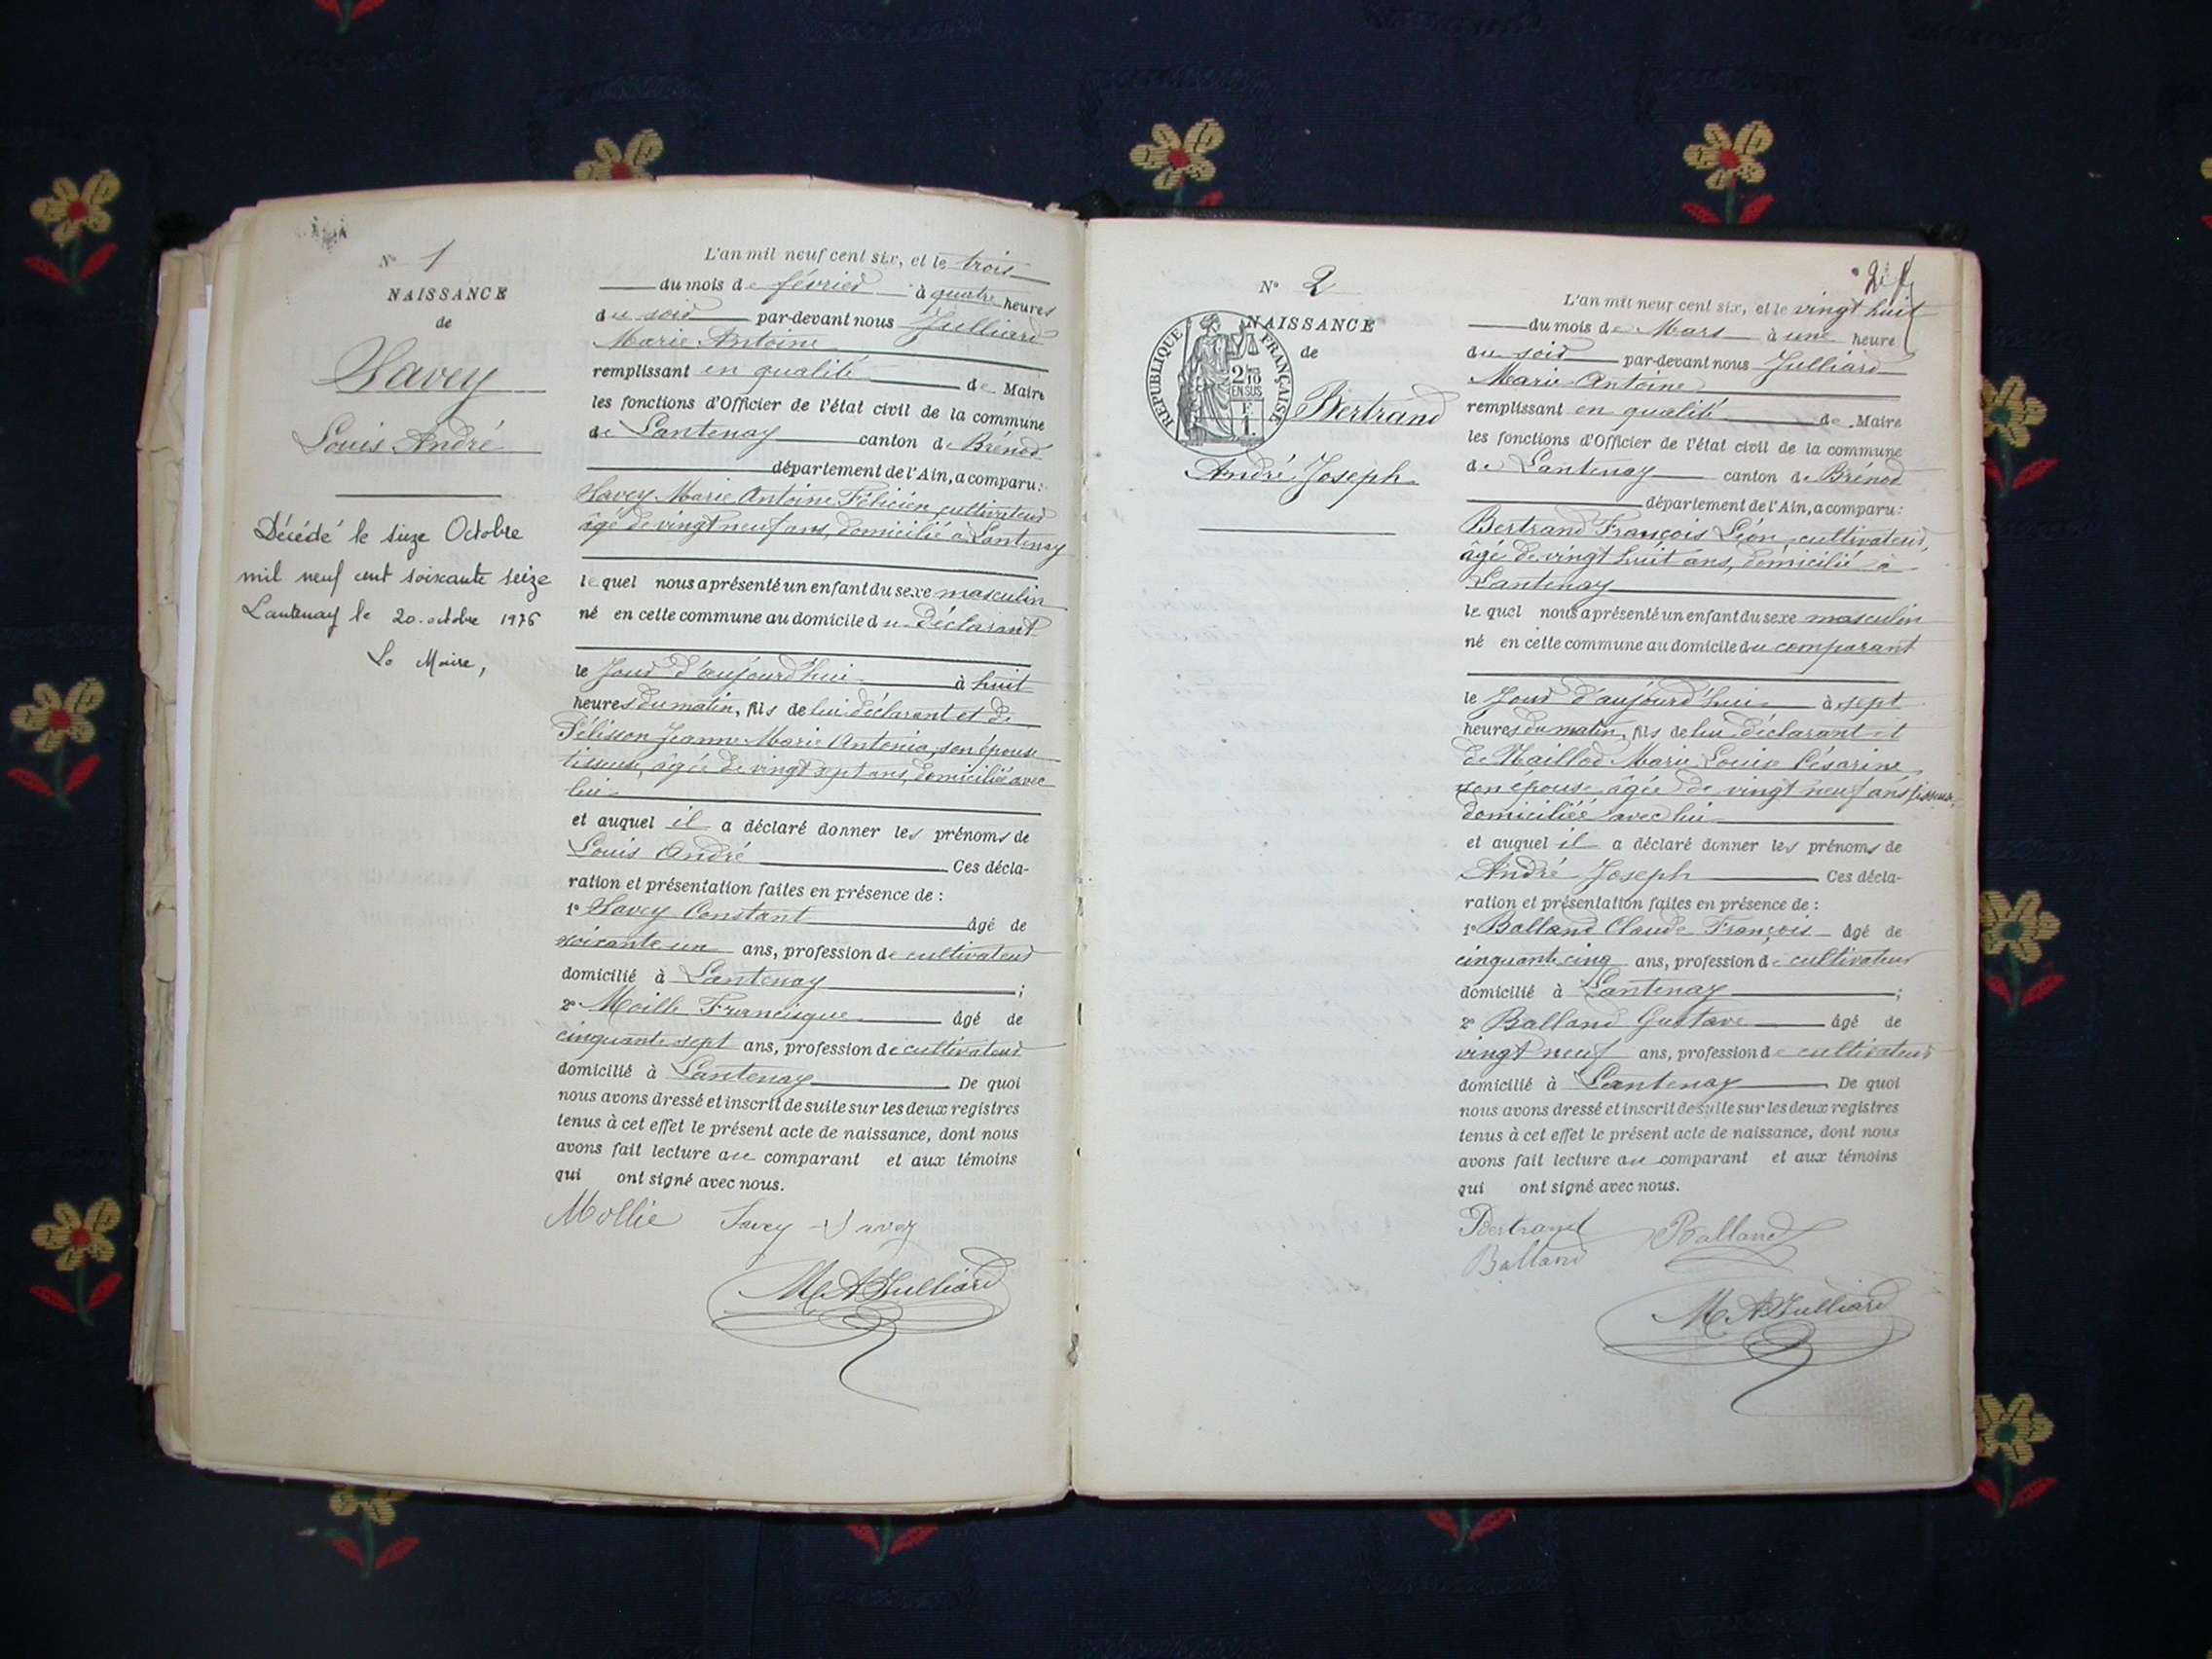 N° 1
NAISSANCE
de
Savey
Louis André
Décédé le seize Octobre
mil neuf cent soixante seize
Lantenay le 20 octobre 1976
Le Maire,
L'an mil neuf cent six, et le trois
du mois de février à quatre heures
du soir par-devant nous Julliard
Marie Antoine
remplissant en qualité de Maire
les fonctions d'Officier de l'état civil de la commune
de Lantenay canton de Brénod
département de l'Ain, a comparu :
Savey Marie Antoine Félicien, cultivateur
âgé de vingt neuf ans, domicilié à Lantenay
lequel nous a présenté un enfant du sexe masculin
né en cette commune au domicile du déclarant
le Jour d'aujourd'hui à huit
heures du matin, fils de lui déclarant et de
Pélisson Jeanne Marie Antonia, son épouse
tisseuse, âgée de vingt sept ans, domiciliée avec
lui
et auquel il a déclaré donner les prénoms de
Louis André Ces décla-
ration et présentation faites en présence de :
1° Savey Constant âgé de
soixante un ans, profession de cultivateur
domicilié à Lantenay ;
2° Moille Francisque âgé de
cinquante sept ans, profession de cultivateur
domicilié à Lantenay De quoi
nous avons dressé et inscrit de suite sur les deux registres
tenus à cet effet le présent acte de naissance, dont nous
avons fait lecture au comparant et aux témoins
qui ont signé avec nous.
Mollie Savey Savey
M A Julliard
N° 2
NAISSANCE
de
RÉPUBLIQUE FRANÇAISE
2/10
EN SUS
F
1.
Bertrand
André Joseph
L'an mil neuf cent six, et le vingt huit
du mois de Mars à une heure
du soir par-devant nous Julliard
Marie Antoine
remplissant en qualité de Maire
les fonctions d'Officier de l'état civil de la commune
de Lantenay canton de Brénod
département de l'Ain, a comparu :
Bertrand François Léon, cultivateur,
âgé de vingt huit ans, domicilié à
Lantenay
lequel nous a présenté un enfant du sexe masculin
né en cette commune au domicile du comparant
le Jour d'aujourd'hui à sept
heures du matin, fils de lui déclarant et
de Maillod Marie Louise Césarine
son épouse âgée de vingt neuf ans tisseuse,
domiciliée avec lui
et auquel il a déclaré donner les prénoms de
André Joseph Ces décla-
ration et présentation faites en présence de :
1° Balland Claude François âgé de
cinquante cinq ans, profession de cultivateur
domicilié à Lantenay ;
2° Balland Gustave âgé de
vingt neuf ans, profession de cultivateur
domicilié à Lantenay De quoi
nous avons dressé et inscrit de suite sur les deux registres
tenus à cet effet le présent acte de naissance, dont nous
avons fait lecture au comparant et aux témoins
qui ont signé avec nous.
Bertrand Balland
Balland
M A Julliard